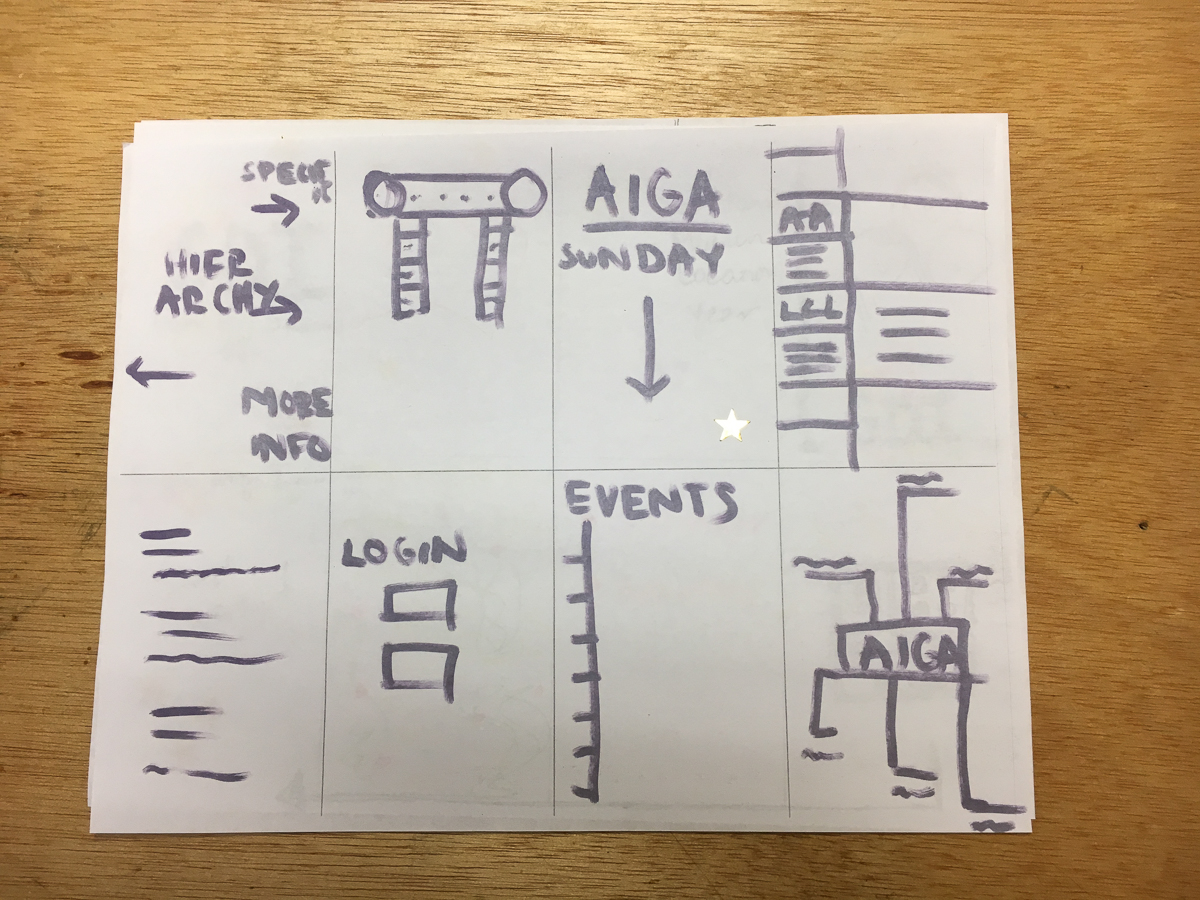 SPECIF
IC
HIER
ARCHY
MORE
INFO
AIGA
SUNDAY
LOGIN
EVENTS
AIGA